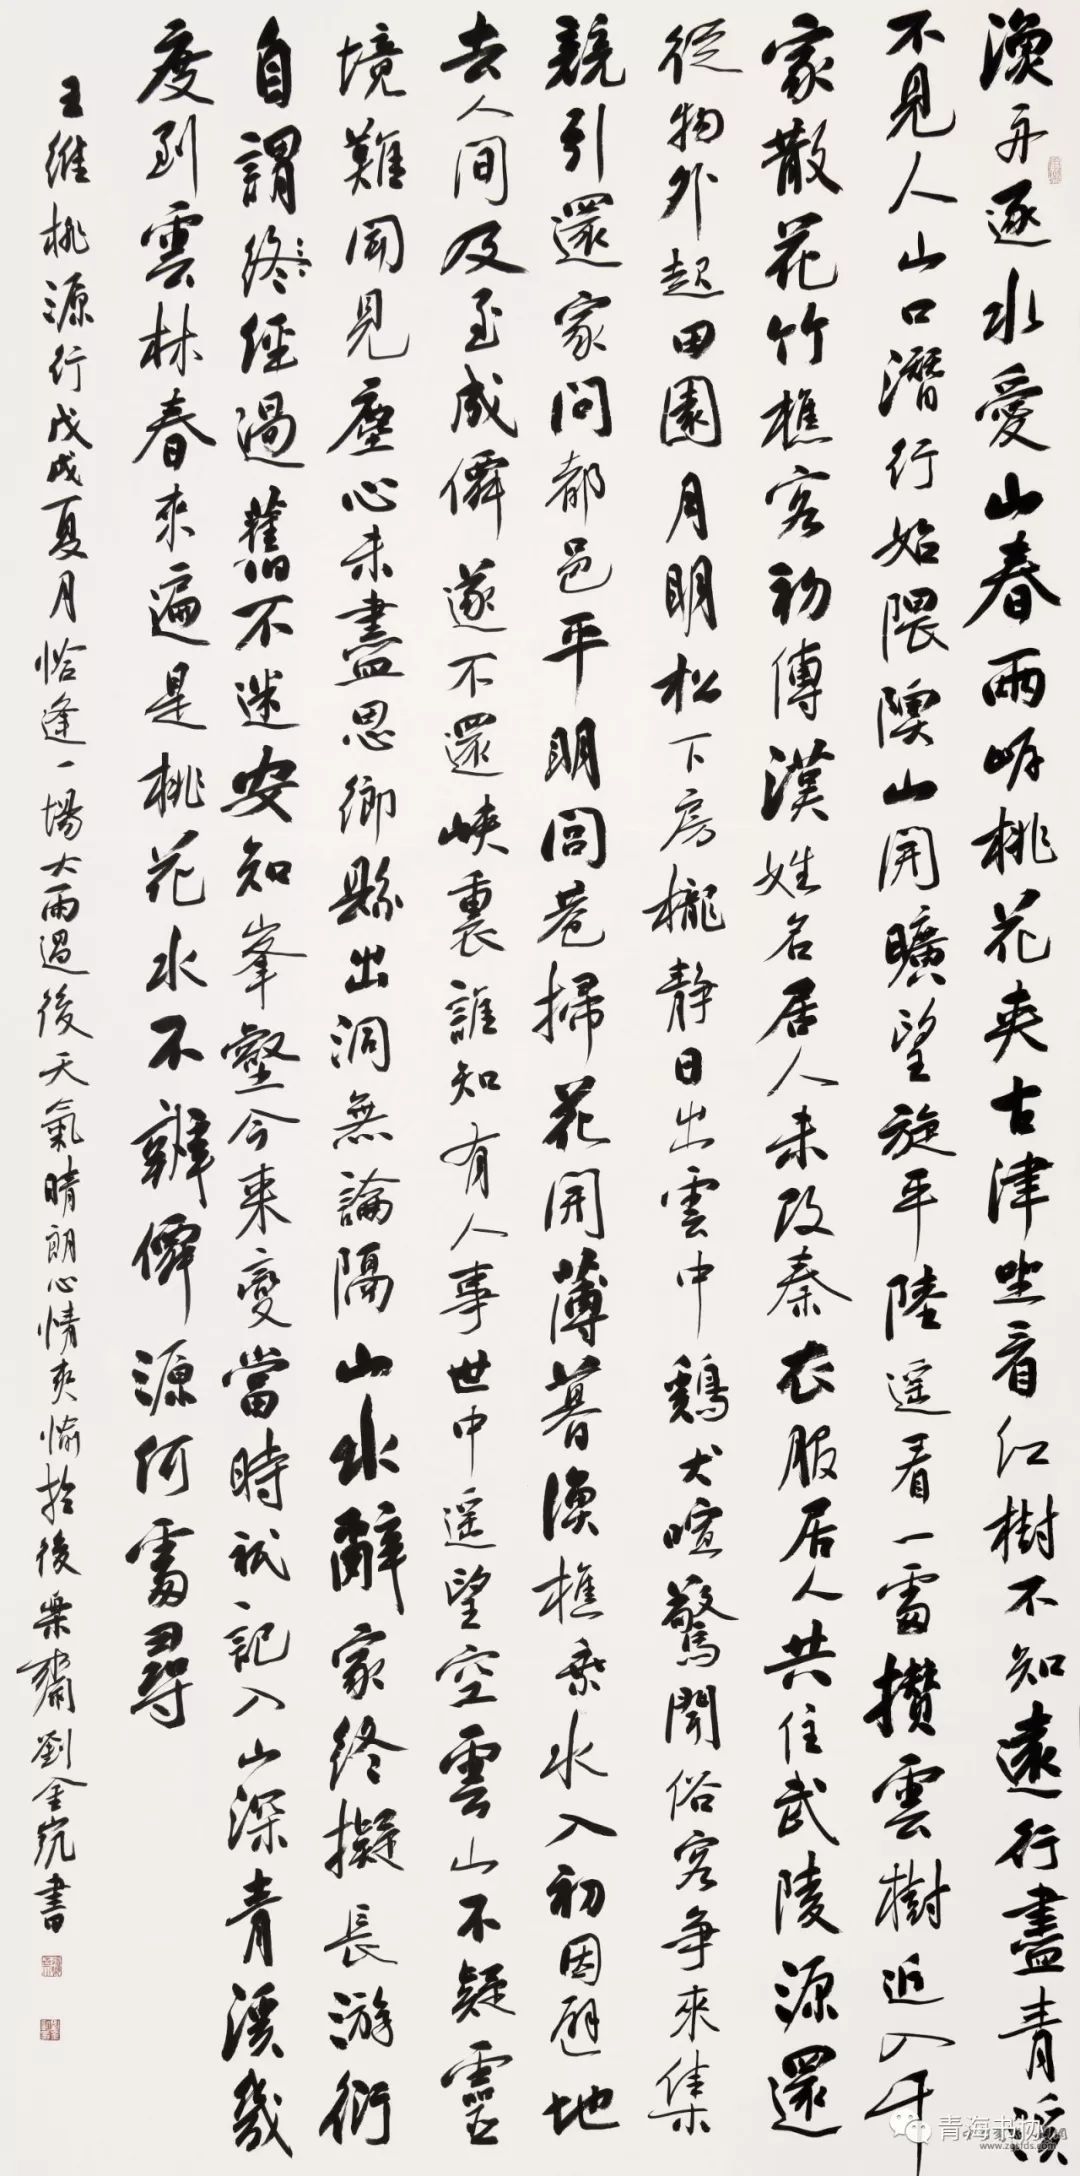 漁舟逐水愛山春兩岸桃花夾古津坐看紅樹不知遠行盡青溪
不見人山口潛行始隈隩山開曠望旋平陸遥看一處攢雲樹近入千
家散花竹樵客初傳漢姓名居人未改秦衣服居人共住武陵源還
從物外起田園月明松下房櫳静日出雲中鷄犬喧驚聞俗客争來集
競引還家問都邑平明閭巷掃花開薄暮漁樵乘水入初因避地
去人間及至成僊遂不還峽裏誰知有人事世中遥望空雲山不疑靈
境難聞見塵心未盡思鄉縣出洞無論隔山水辭家終擬長游衍
自謂終經過舊不迷安知峯壑今来變當時祇記入山深青溪幾
度到雲林春來遍是桃花水不辨僊源何處尋
王維桃源行戊戌夏月恰逢一場大雨過後天氣晴朗心情爽愉於後樂齋劉金書
青海书协
www.zgsfds.com